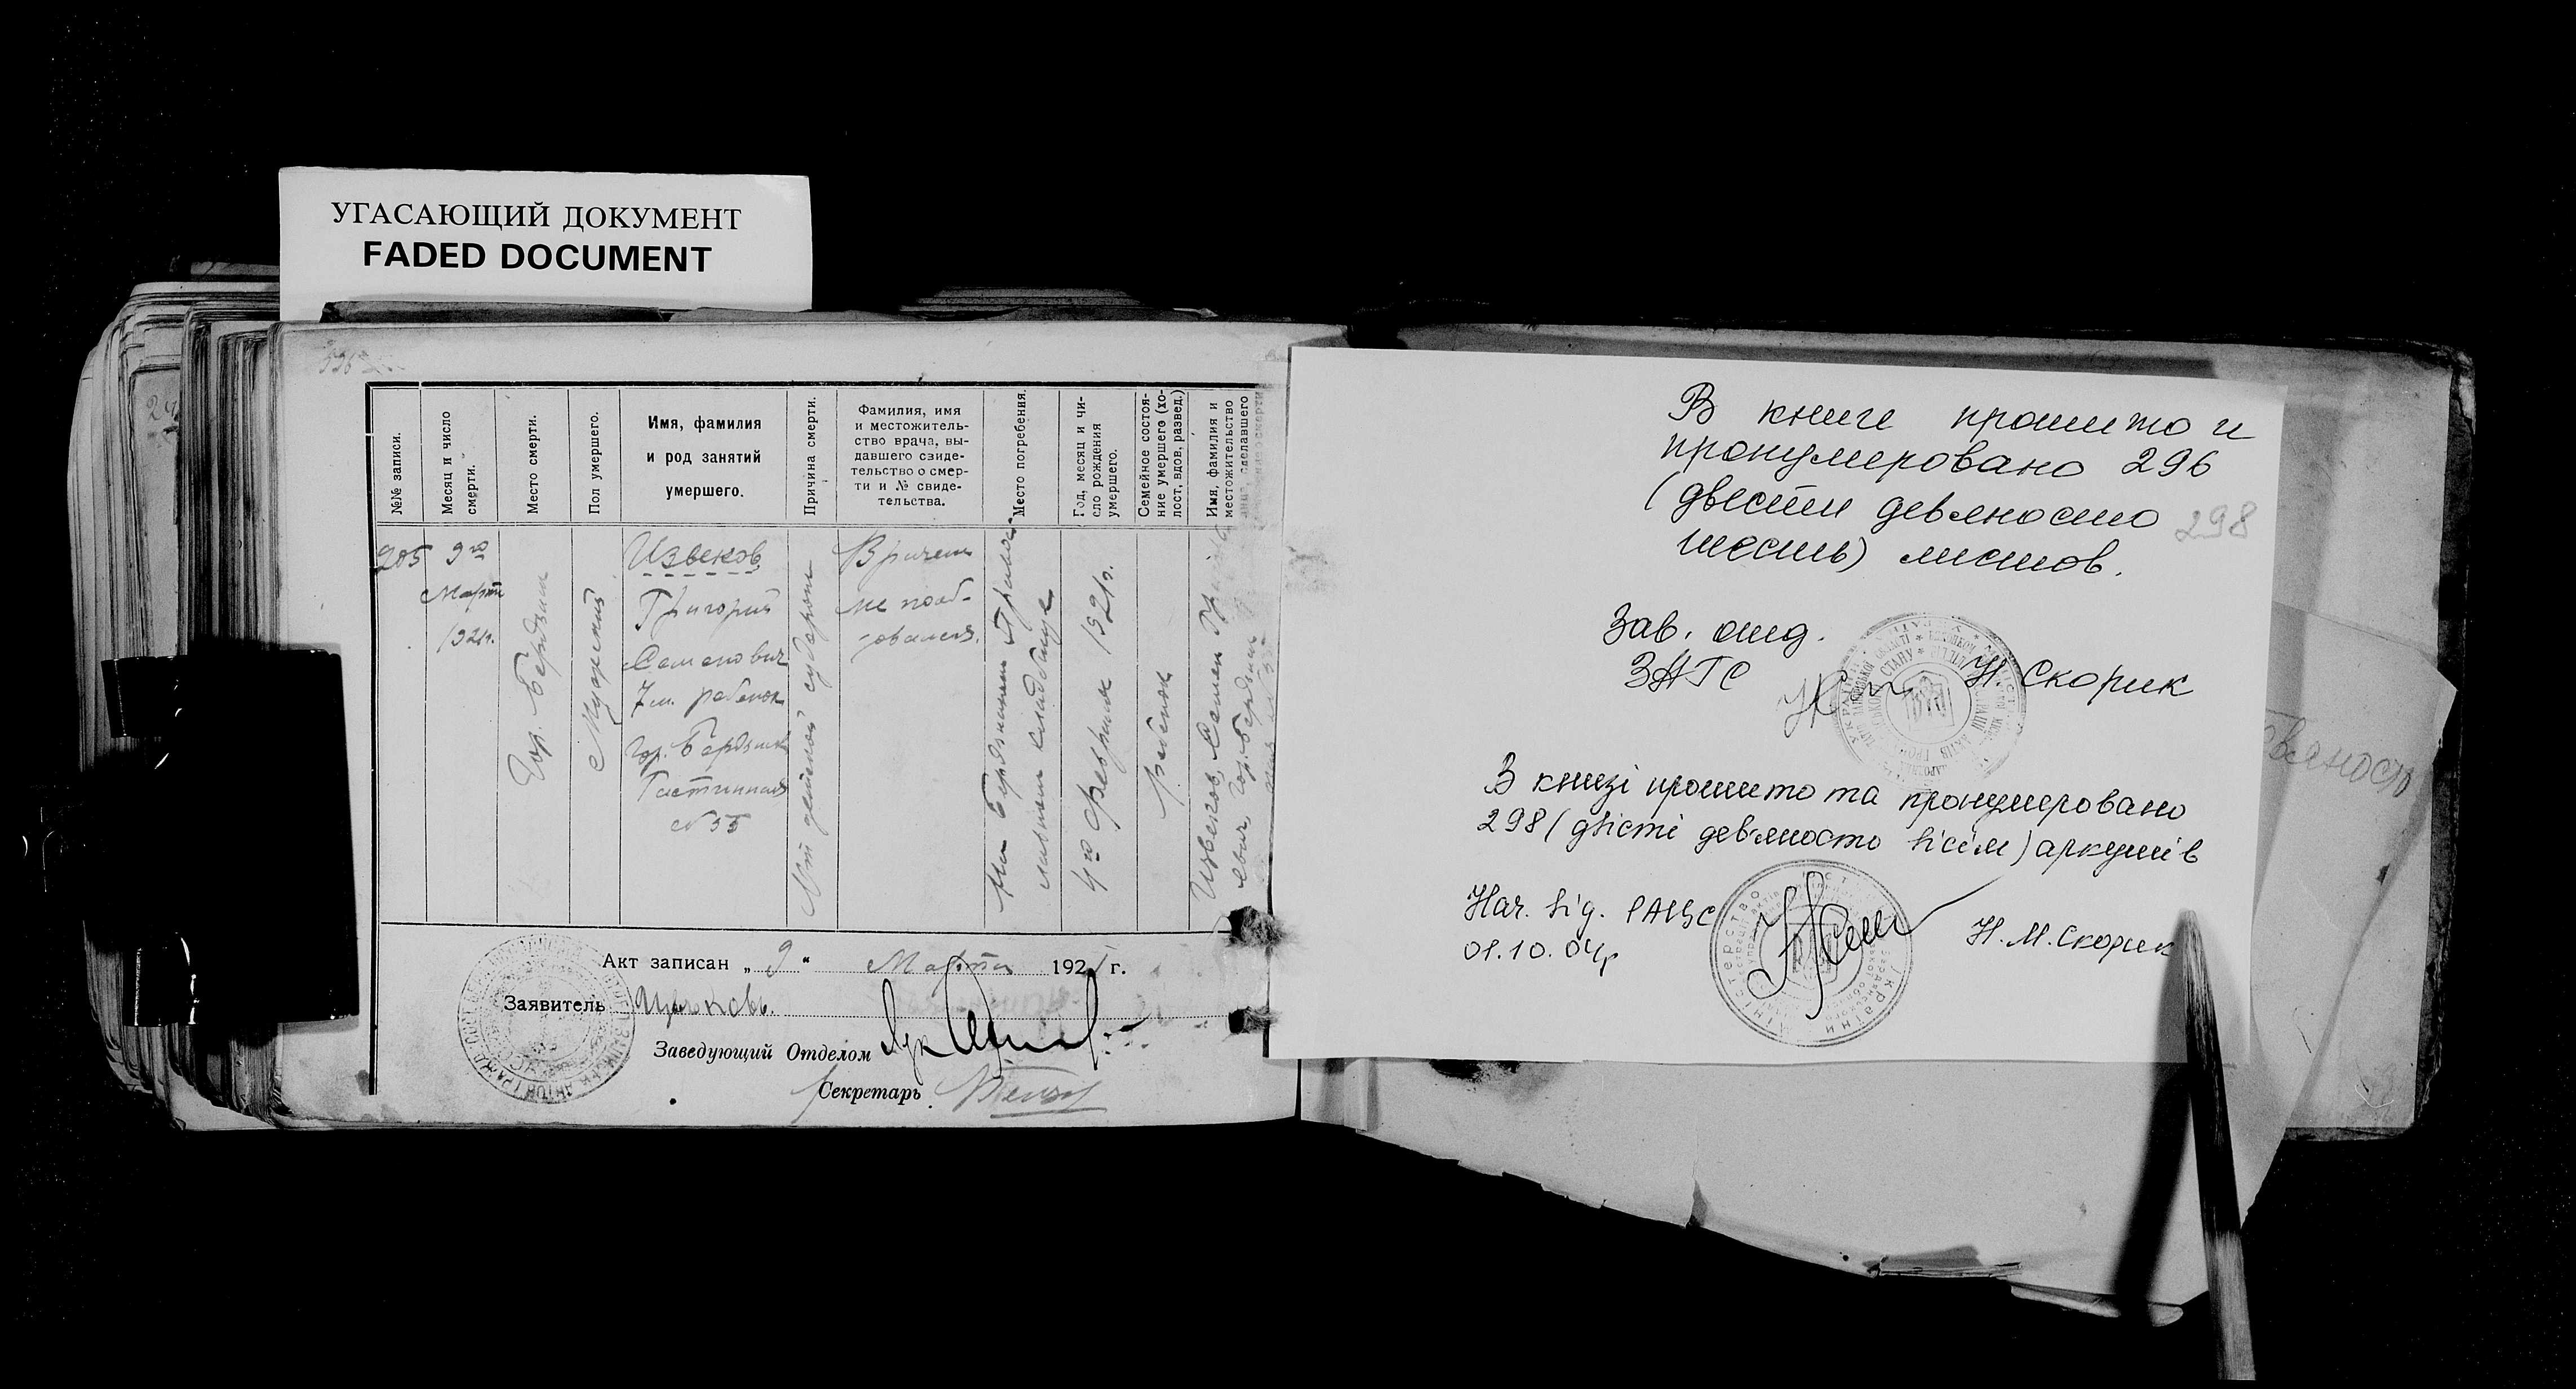 УГАСАЮЩИЙ ДОКУМЕНТ
FADED DOCUMENT
№№ записи.
Месяц и число
смерти.
Место смерти.
Пол умершего.
Имя, фамилия
и род занятий
умершего.
Причина смерти.
Фамилия, имя
и местожитель-
ство врача, вы-
давшего свиде-
тельство о смер-
ти и № свиде-
тельства.
Место погребения.
Год, месяц и чи-
сло рождения
умершего.
Семейное состоя-
ние умершего (хо-
лост, вдов, развед.)
Имя, фамилия и
местожительство
205
9го
Марта
1921г.
Гор. Бердянск
Мужский
Извеков
Григорий
Семенович
7 м. ребенок
Гор. Бердянск
№ 55
От детской судороги
Врачем
не польз-
овался.
На Бердянском
кладбище
4го февраля 1921г.
ребенок
Извеков, Семен
Гор. Бердянск
Акт записан „ 9 “ Марта 1921 г.
Заявитель
Заведующий Отделом
Секретарь
В книге прошито и
пронумеровано 296
(двести девяносто
шесть) листов.
298
Зав. отд.
ЗАГС Н. Скорик
В книзі прошито та пронумеровано
298 (двісті дев'яносто вісім) аркушів
Нач. від. РАЦС
01.10.04р
Н. М. Скорик